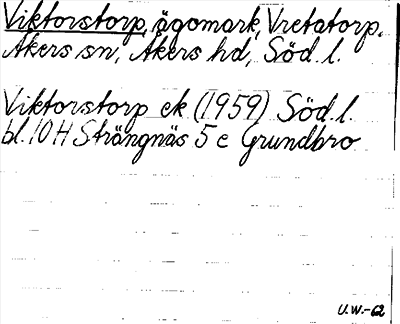 Viktorstorp, ägomark, Vretatorp.
Åkers sn, Åkers hd, Söd. l.
Viktorstorp ek (1959) Söd. l.
bl. 10 H Strängnäs 5 c Grundbro
U.W.-62